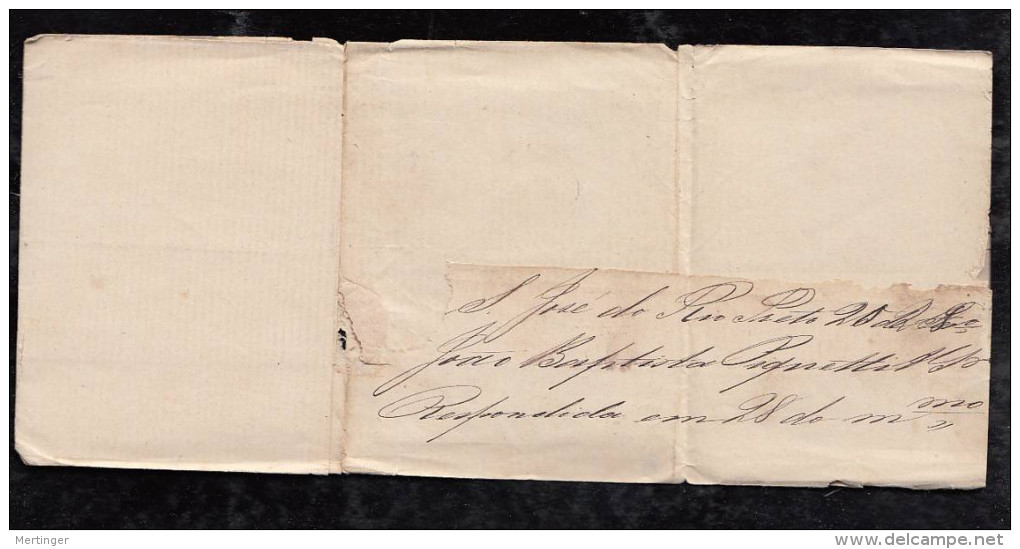 S. José do Rio Preto 20 de
João Baptista Pignatti
Respondida em 28 do m mo
Mertinger
www.delcampe.net